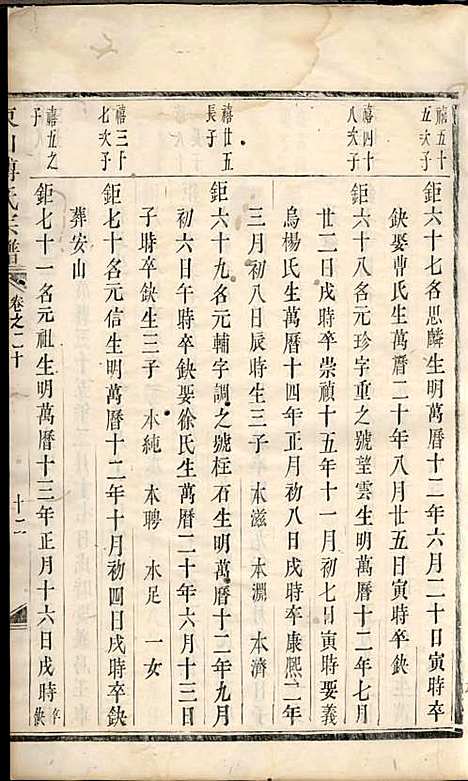 禧五十
五次子
鉅六十七名思麟生明萬曆十二年六月二十日寅時卒
缺娶曹氏生萬曆二十年八月廿五日寅時卒缺
禧四十
八次子
鉅六十八名元珍字重之號望雲生明萬曆十二年七月
廿二日戌時卒崇禎十五年十一月初七日寅時娶義
烏楊氏生萬曆十四年正月初八日戌時卒康熙二年
三月初八日辰時生三子 本滋 本淵 本濟
禧廿五
長子
鉅六十九名元輔字調之號柱石生明萬曆十二年九月
初六日午時卒缺娶徐氏生萬曆二十年六月十三日
子時卒缺生三子 本純 本聘 本足 一女
禧三十
七次子
鉅七十名元信生明萬曆十二年十月初四日戌時卒缺
葬安山
禧五之
子
鉅七十一名元祖生明萬曆十三年正月十六日戌時卒缺
氏宗譜
卷之二十
十二